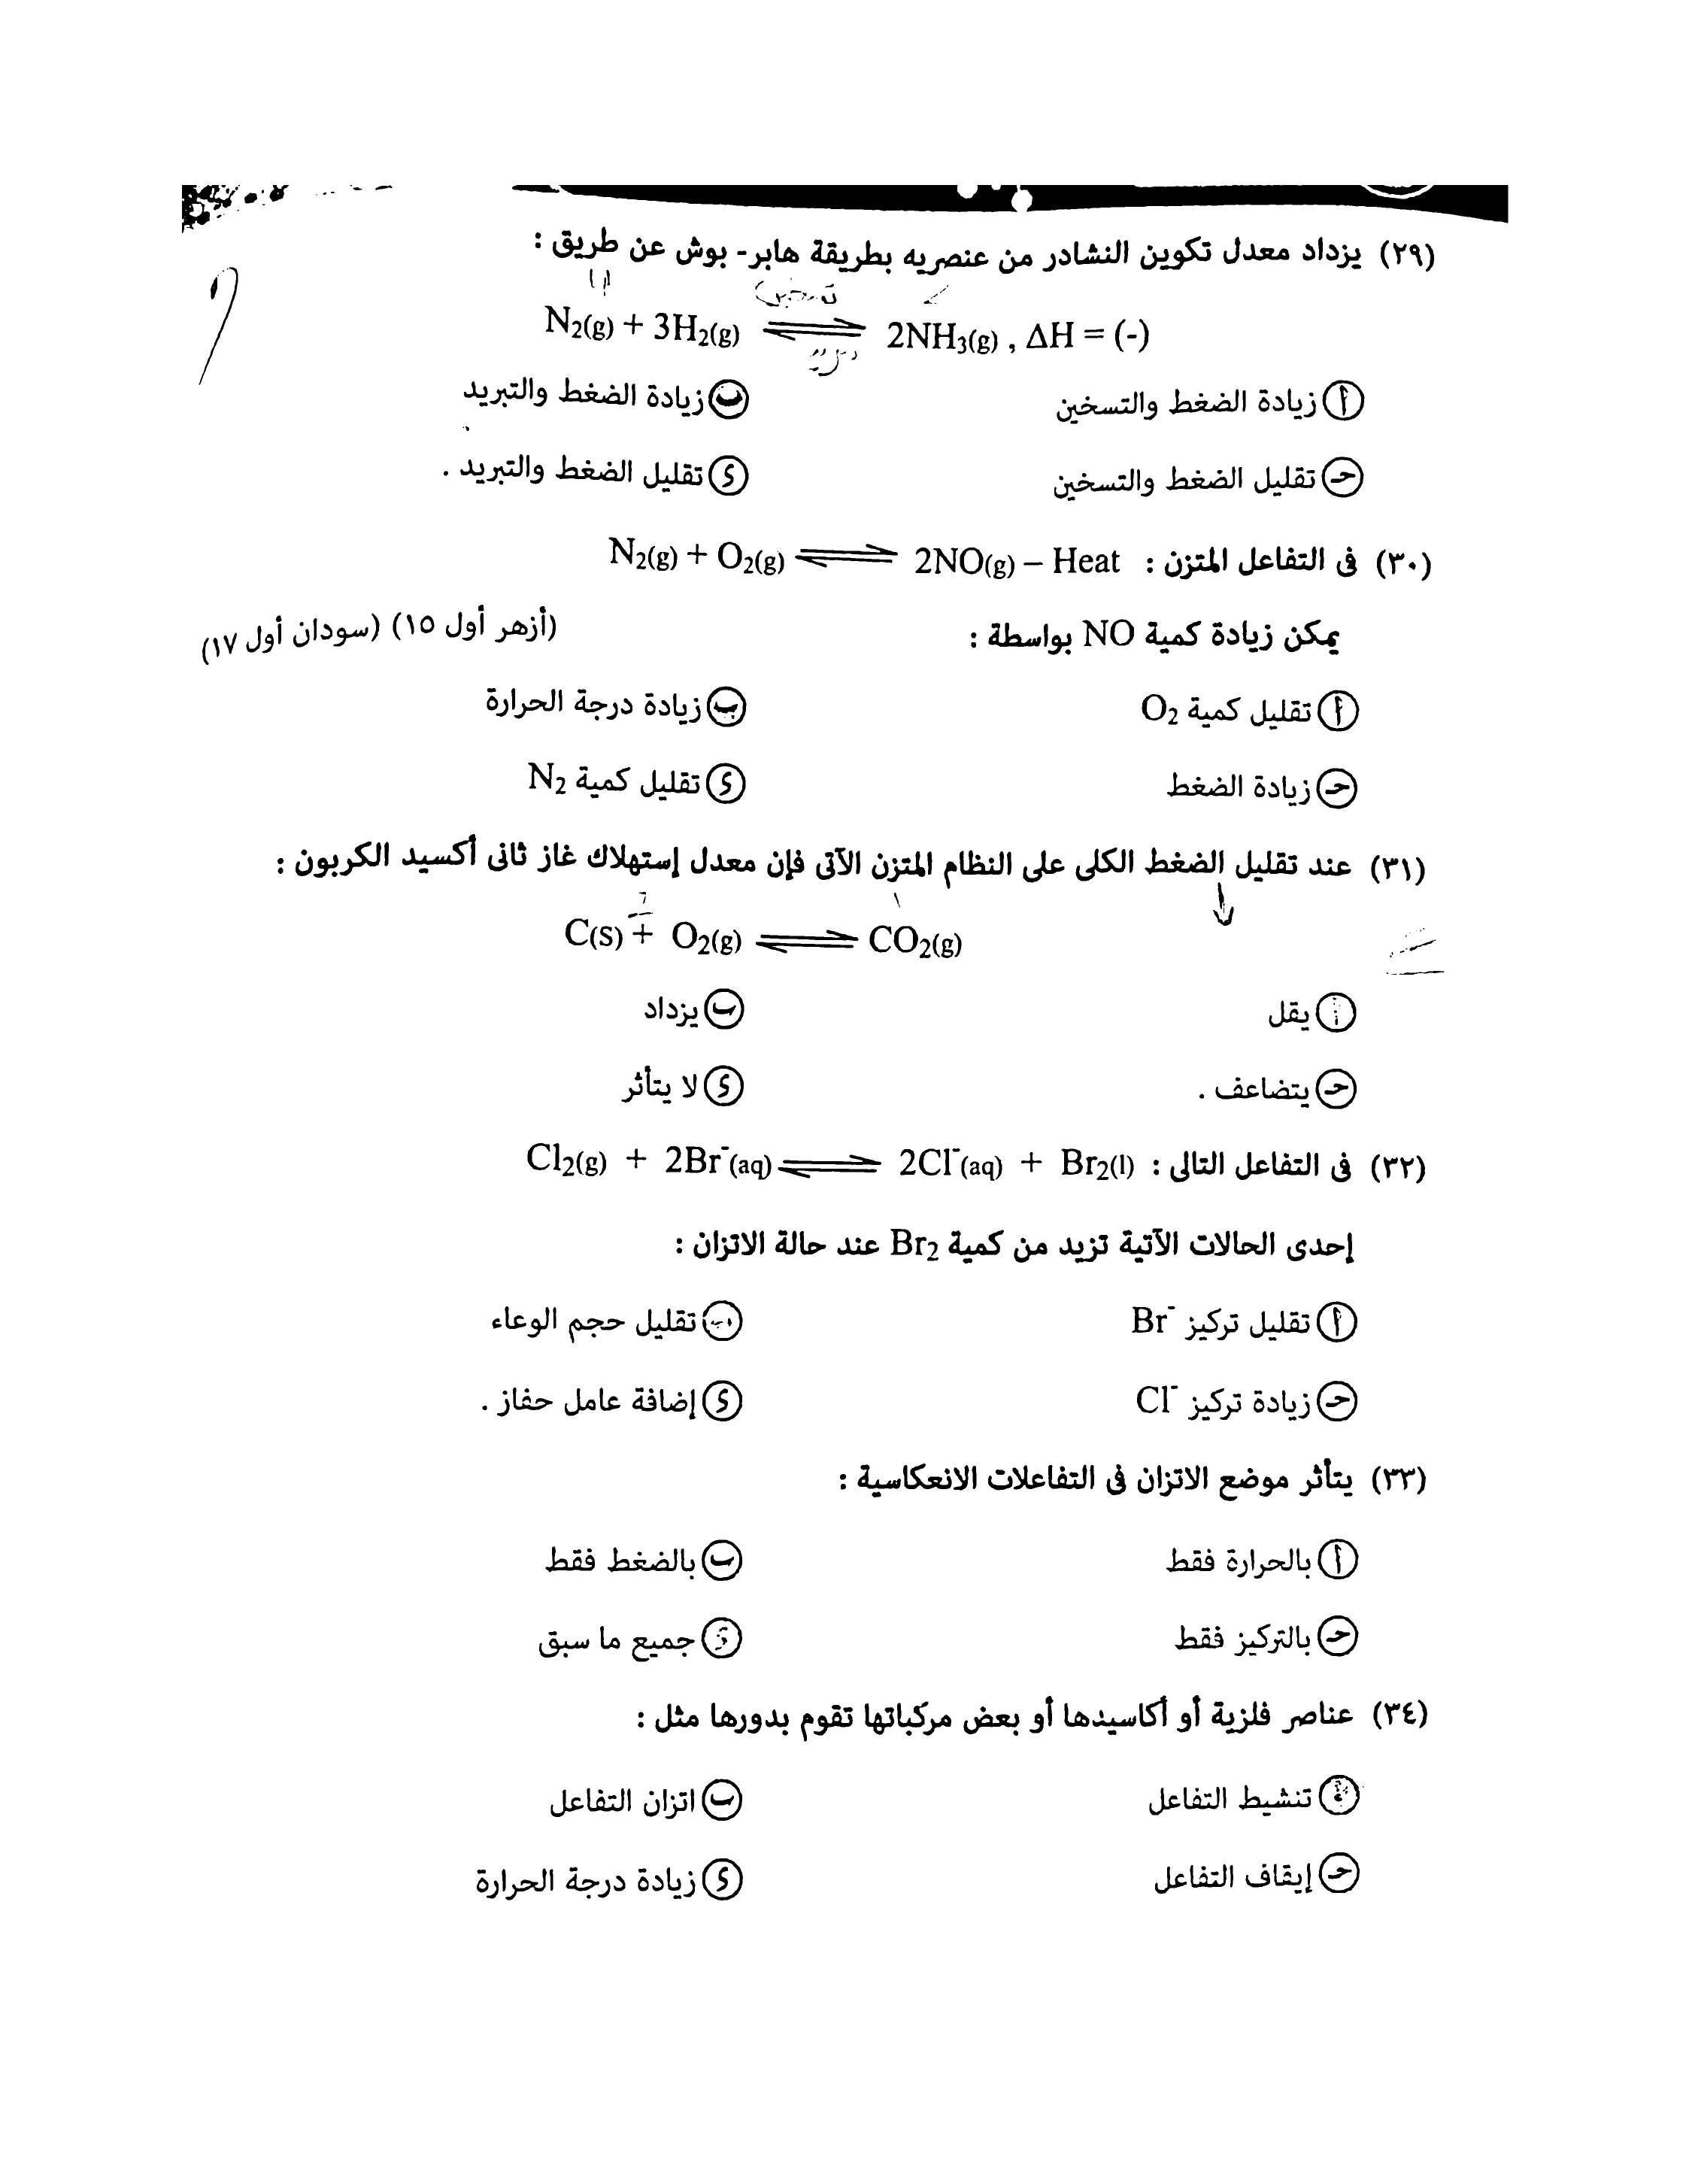 (٢٩) يزداد معدل تكوين النشادر من عنصريه بطريقة هابر- بوش عن طريق :
N2(g) + 3H2(g) ⇌ 2NH3(g) , ΔH = (-)
أ زيادة الضغط والتسخين
ب زيادة الضغط والتبريد
حـ تقليل الضغط والتسخين
ى تقليل الضغط والتبريد .
(٣٠) فى التفاعل المتزن : N2(g) + O2(g) ⇌ 2NO(g) – Heat
يمكن زيادة كمية NO بواسطة : (أزهر أول ١٥) (سودان أول ١٧)
أ تقليل كمية O2
ب زيادة درجة الحرارة
حـ زيادة الضغط
ى تقليل كمية N2
(٣١) عند تقليل الضغط الكلى على النظام المتزن الآتى فإن معدل إستهلاك غاز ثانى أكسيد الكربون :
C(S) + O2(g) ⇌ CO2(g)
أ يقل
ب يزداد
حـ يتضاعف .
ى لا يتأثر
(٣٢) فى التفاعل التالى : Cl2(g) + 2Br-(aq) ⇌ 2Cl-(aq) + Br2(l)
إحدى الحالات الآتية تزيد من كمية Br2 عند حالة الاتزان :
أ تقليل تركيز Br-
ب تقليل حجم الوعاء
حـ زيادة تركيز Cl-
ى إضافة عامل حفاز .
(٣٣) يتأثر موضع الاتزان فى التفاعلات الانعكاسية :
أ بالحرارة فقط
ب بالضغط فقط
حـ بالتركيز فقط
ى جميع ما سبق
(٣٤) عناصر فلزية أو أكاسيدها أو بعض مركباتها تقوم بدورها مثل :
أ تنشيط التفاعل
ب اتزان التفاعل
حـ إيقاف التفاعل
ى زيادة درجة الحرارة